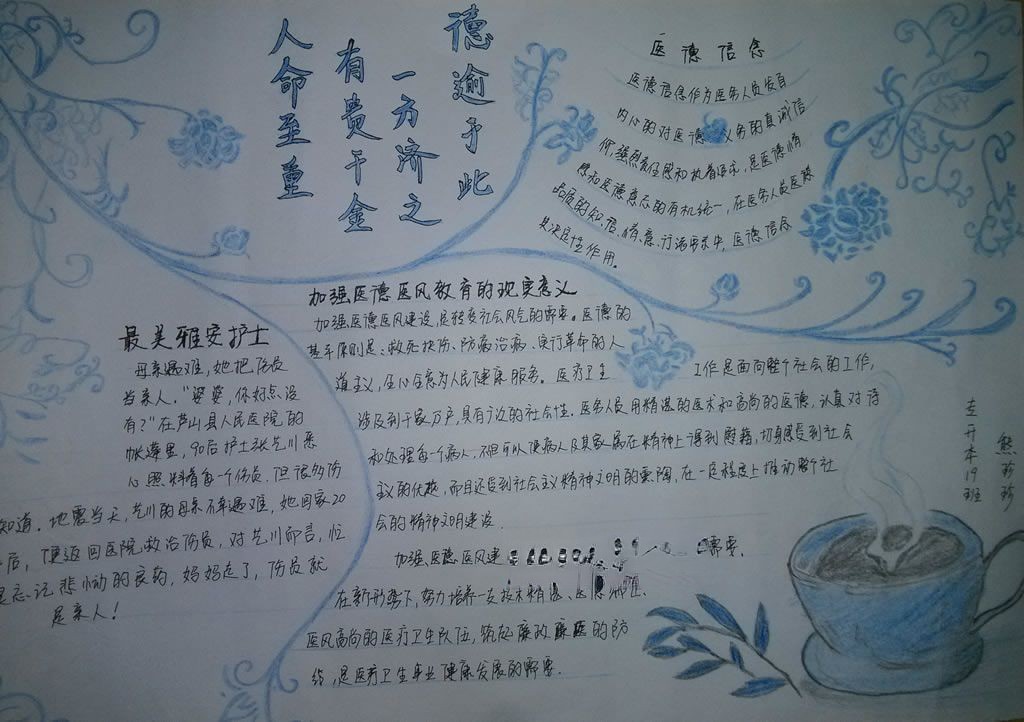 人命至重
有贵千金
一方济之
德逾于此
医德信念
医德信念作为医务人员发自
内心的对医德义务的真诚信
仰,强烈责任感和执着追求,是医德情
感和医德意志的有机统一,在医务人员医德
品质的知、信、情、意、行诸要求中,医德信念
其决定性作用。
加强医德医风教育的现实意义
加强医德医风建设,是转变社会风气的需要。医德的
基本原则是:救死扶伤、防病治病、实行革命的人
道主义,全心全意为人民健康服务。医疗卫生 工作是面向整个社会的工作,
涉及到千家万户,具有广边的社会性。医务人员用精湛的医术和高尚的医德,认真对待
和处理每一个病人,不但可以使病人及其家属在精神上得到慰藉,切身感受到社会
主义的优越,而且还受到社会主义精神文明的熏陶,在一定程度上推动整个社
会的精神文明建设.
加强医德医风建 需要.
在新形势下,努力培养一支技术精湛、医
医风高尚的医疗卫生队伍,筑起廉政廉医的防
线,是医疗卫生事业健康发展的需要.
最美雅安护士
母亲遇难,她把伤员
当亲人."婆婆,你好点没
有?"在芦山县人民医院的
帐篷里,90后护士张艺川悉
心照料着每一个伤员.但很多伤
知道.地震当天,艺川的母亲不幸遇难,她回家20
后,便返回医院救治伤员,对艺川而言,忙
是忘记悲恸的良药,妈妈走了,伤员就
是亲人!
本19班
熊珍珍